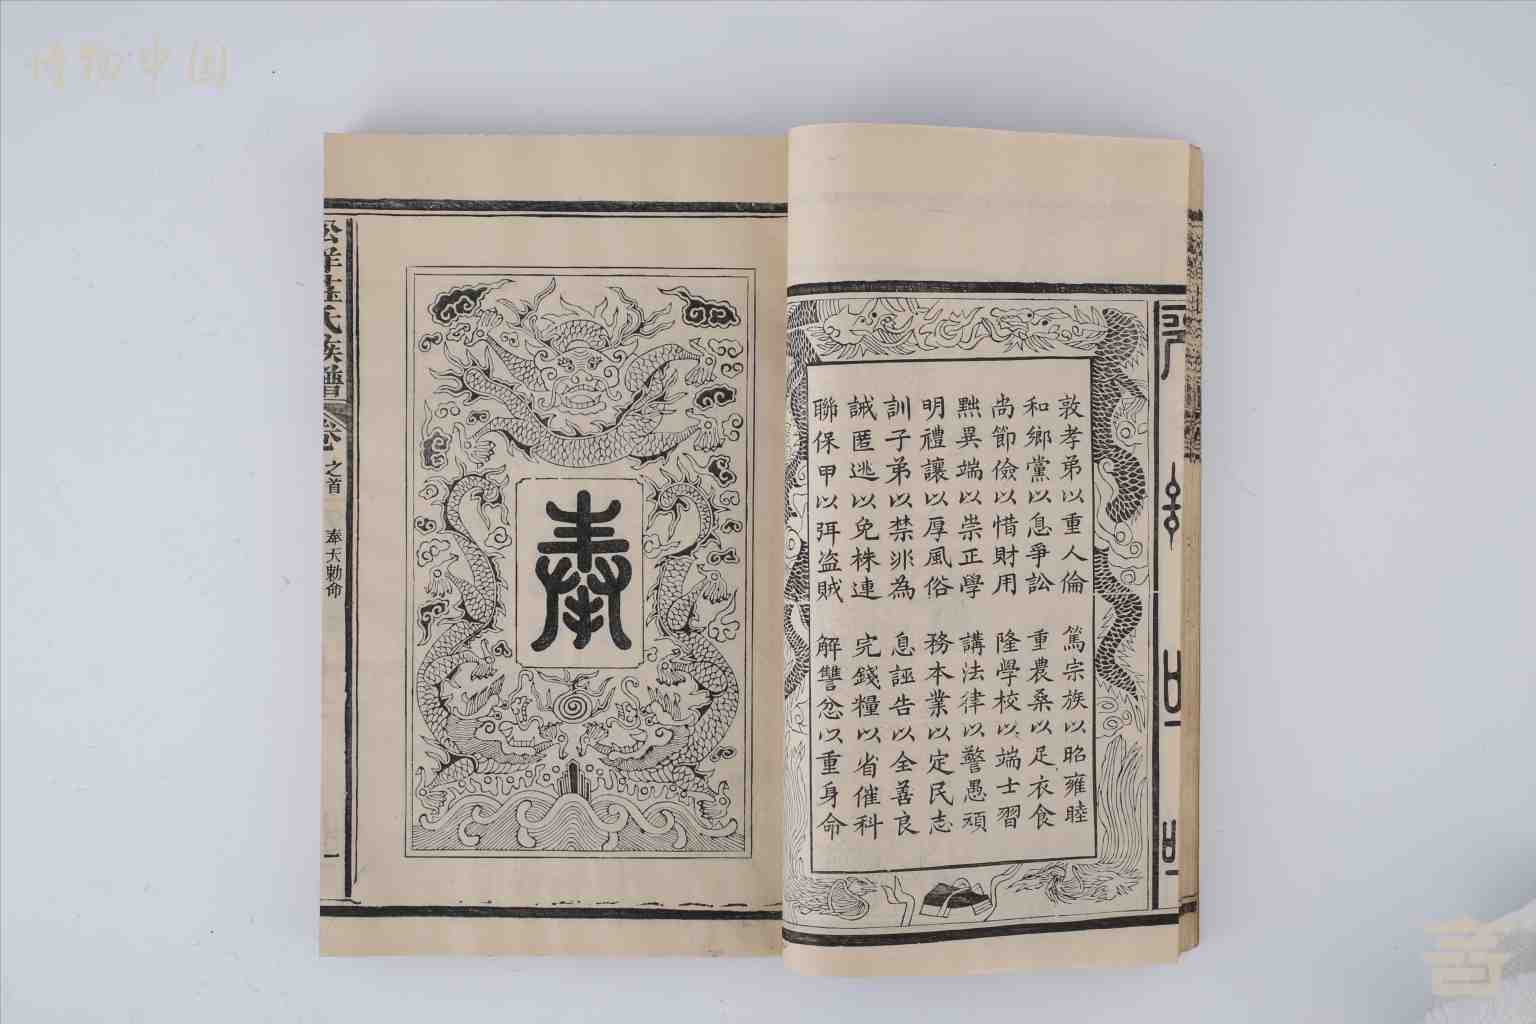 博物中国
敦孝弟以重人倫 篤宗族以昭雍睦
和鄉黨以息爭訟 重農桑以足衣食
尚節儉以惜財用 隆學校以端士習
黜異端以崇正學 講法律以警愚頑
明禮讓以厚風俗 務本業以定民志
訓子弟以禁非為 息誣告以全善良
誡匿逃以免株連 完錢糧以省催科
聯保甲以弭盗賊 解讐忿以重身命
奉
氏族譜 卷之首 奉天勅命 一